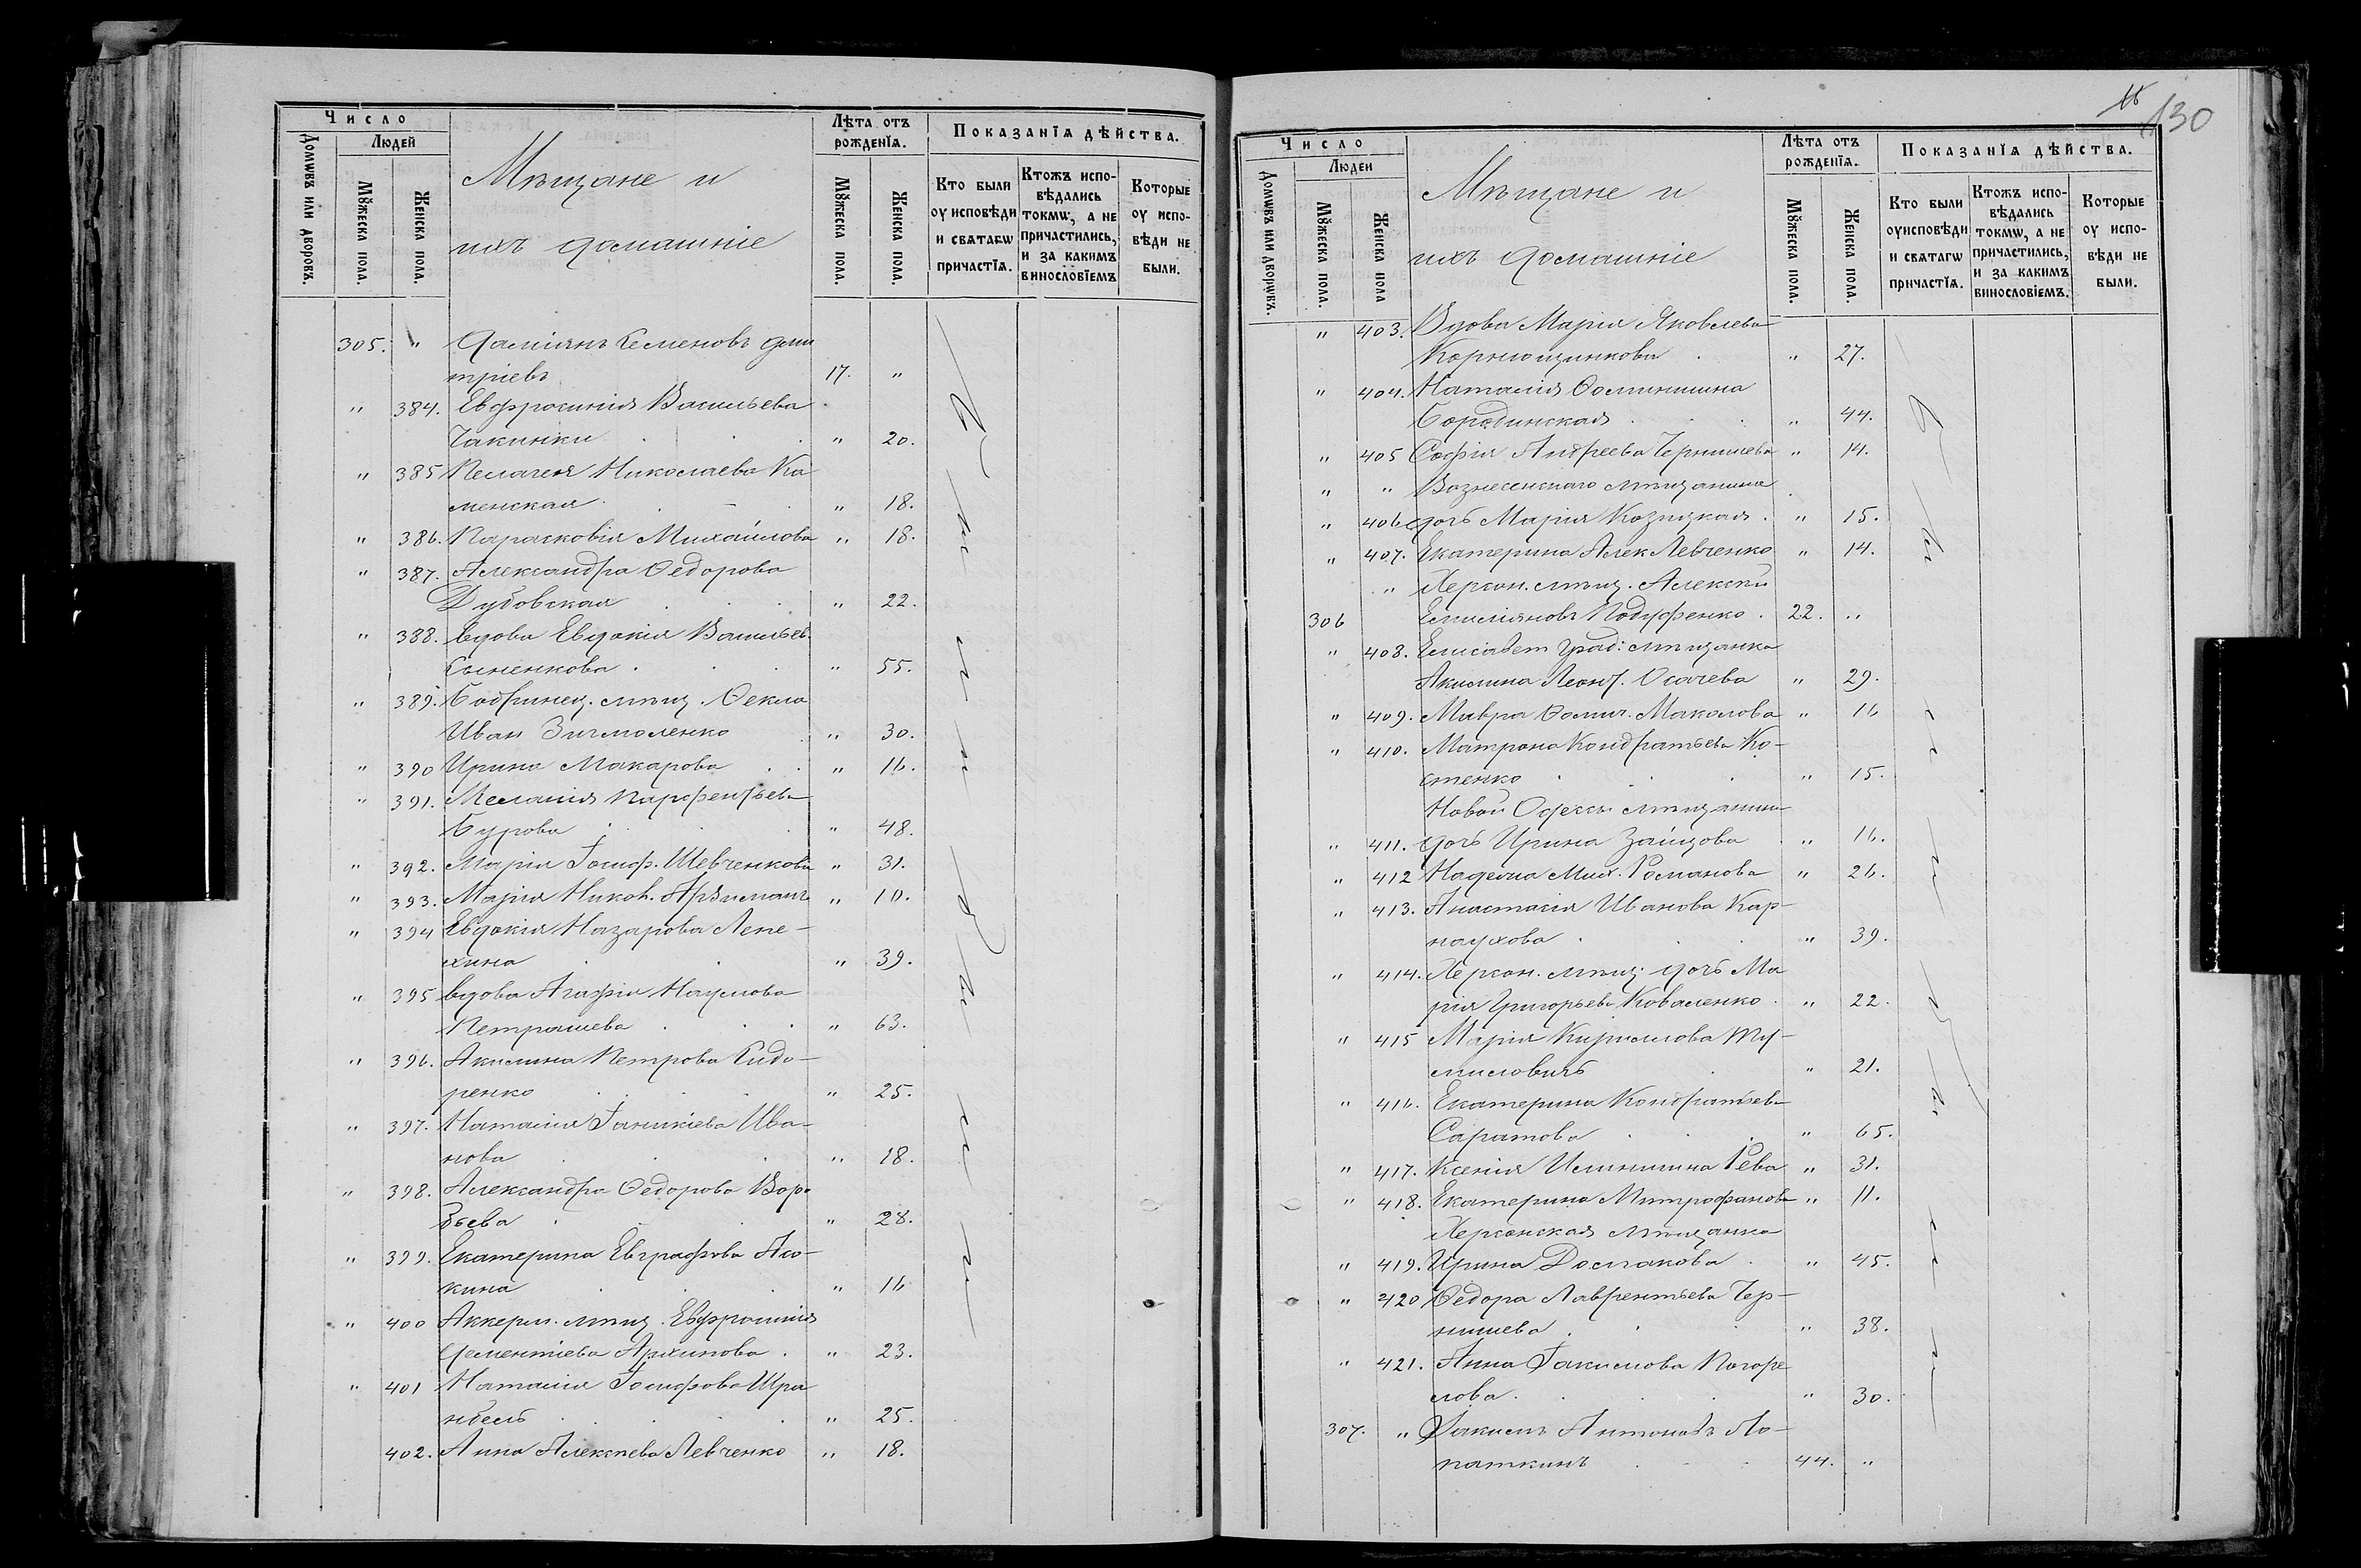 Число
Людей
Домѡвъ или дворовъ.
Мꙋжеска пола.
Женска пола.
Мѣщане и
ихъ домашніе
Лѣта отъ
рожденїѧ.
Мꙋжеска пола.
Женска пола.
Показанїѧ дѣйства.
Кто были
оу исповѣди
и свѧтагѡ
причастїѧ.
Ктожъ испо-
вѣдались
токмѡ, а не
причастились,
и за какимъ
винословїемъ
Которые
оу испо-
вѣди не
были.
305. " Даміянъ Семеновъ Дми
тріевъ 17. "
" 384. Евфросинія Васильева
Чакинки " 20.
" 385 Пелагея Николаева Ка
менская " 18.
" 386. Парасковія Михайлова " 18.
" 387. Александра Ѳедорова
Дубовская " 22.
" 388. вдова Евдокія Васильев.
" 55.
" 389. Бобринец. мѣщ. Ѳекла
Иван " 30.
" 390 Ирина Макарова " 16.
" 391. Меланія Парфентьева
Бурова " 48.
" 392. Марія Іосиф. Шевченкова " 31.
" 393. Марія Никол. " 10.
" 394 Евдокія Назарова Лепе-
хина " 39.
" 395 вдова Агафія Наумова
Петрашева " 63.
" 396. Акилина Петрова Сидо-
ренко " 25.
" 397. Наталія Іоникіева Ива-
нова " 18.
" 398. Александра Ѳедорова Воро
бьева " 28.
" 399. Екатерина Евграфова Ало-
кина " 16
" 400 Аккерм. мѣщ. Евфросинія
Дементіева Архипова " 23.
" 401 Наталія Іосифова Шра
нбель " 25.
402. Анна Алексѣева Левченко " 18.
130
Число
Людей
Домѡвъ или дворѡвъ.
Мꙋжеска пола.
Женска пола
Мѣщане и
ихъ домашніе
Лѣта отъ
рожденїѧ.
Мꙋжеска пола.
Женска пола.
Показанїѧ дѣйства.
Кто были
оуисповѣди
и свѧтагѡ
причастїѧ.
Ктожъ испо-
вѣдались
токмѡ, а не
причастились,
и за какимъ
винословїемъ.
Которые
оу испо-
вѣди не
были.
" 403. Вдова Марія Яковлева
" 27.
" 404. Наталія Ѳоминишна
Бородинская " 44.
" 405 Софія Андреева Чернышева " 14.
" " Вознесенскаго мѣщанина
" 406 дочь Марія Козицкая " 15.
" 407. Екатерина Алек Левченко " 14.
" Херсон. мѣщ. Алексѣй
306 Емиліяновъ 22. "
" 408. Елисавет град: мѣщанка
Акилина Леонт. Осачева " 29.
" 409. Мавра Ѳомич. Маколова " 16
" 410. Матрона Кондратьева Ко-
стенко " 15.
Новой Одессы мѣщанина
" 411. дочь Ирина Зайцова " 16.
" 412 Надежда Мих. Романова " 26.
" 413. Анастасія Иванова Кар-
наухова " 39.
" 414. Херсон. мѣщ: дочь Ма
рія Григорьева Коваленко " 22.
" 415 Марія Кириллова
" 21.
" 416. Екатерина Кондратьева
Саратова " 65.
" 417. Ксенія Ильинишна Рева " 31.
" 418. Екатерина Митрофанова " 11.
Херсонская мѣщанка
" 419. Ирина " 45.
" 420 Ѳедора Лаврентьева Чер-
нишева " 38.
" 421. Анна Іакимова Погоре
лова " 30.
307. " Іакимъ Антоновъ Ло-
паткинъ 44. "